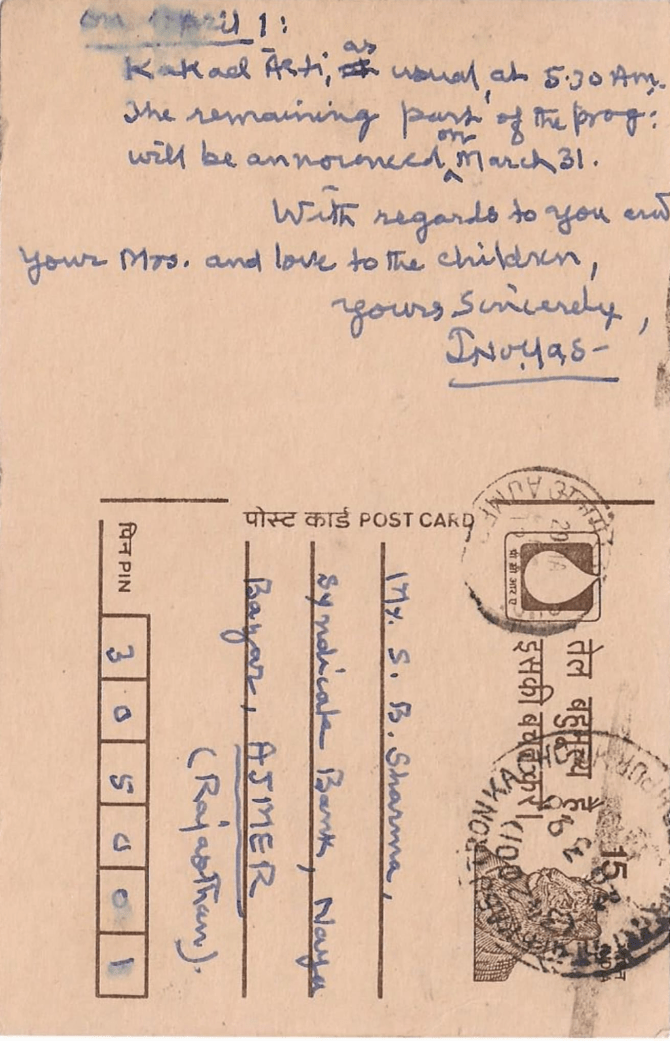 on April 1:
Kakad Arti, as usual, at 5.30 Am.
The remaining part of the prog:
will be announced on March 31.
With regards to you and
Your Mrs. and love to the children,
Yours Sincerely,
पोस्ट कार्ड POST CARD
Mr. S. B. Sharma,
Syndicate Bank, Naya
Bazar, AJMER
(Rajasthan).
पिन PIN 305001
पी सी आर ए
तेल बहुमूल्य है
इसकी बचत करें।
15